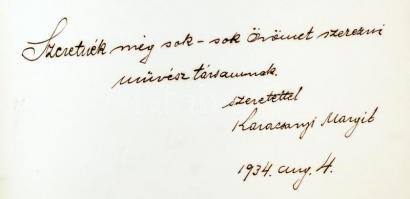 Szeretnék még sok-sok örömet szerezni
művész társamnak.
szeretettel
Karacsonyi Margit
1934. aug. 4.